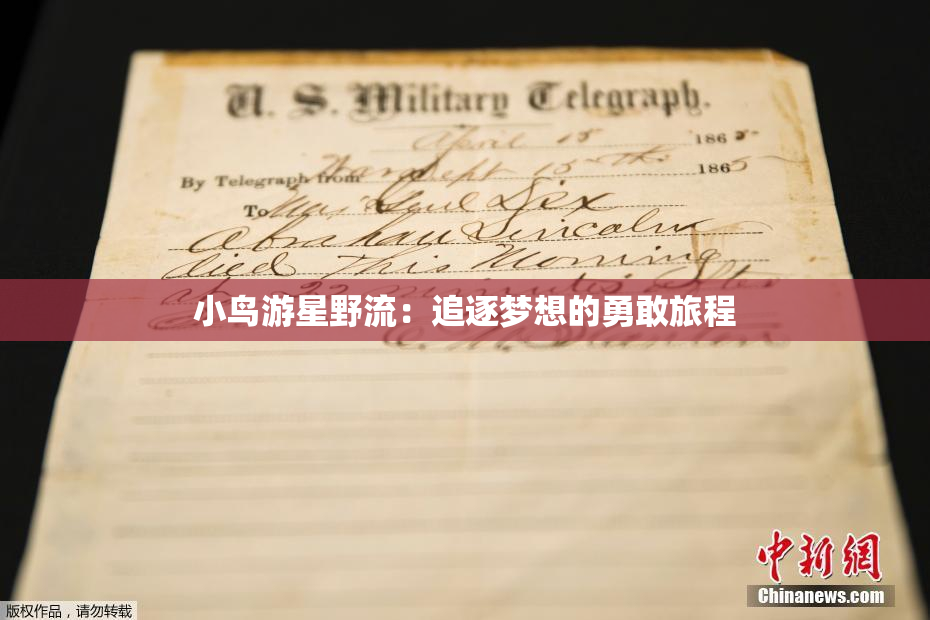 U. S. Military Telegraph.
April 15 1865
By Telegraph from War Dept 15th 1865
To Maj Genl Dix
Abraham Lincoln
died This Morning
at 22 minutes after
小鸟游星野流：追逐梦想的勇敢旅程
E. M. Stanton
中新网
Chinanews.com
版权作品，请勿转载